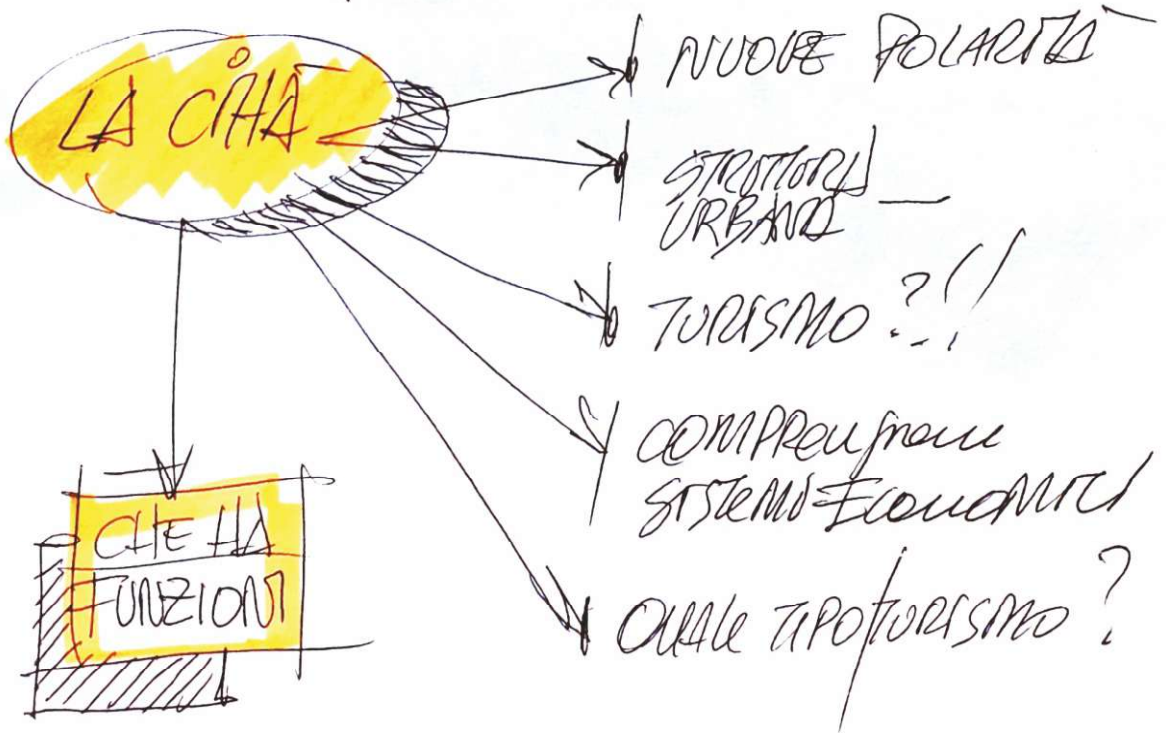 LA CITTÀ
NUOVE POLARITÀ
STRUTTURA
URBANA
TURISMO ?!!
COMPRENSIONE
SISTEMI ECONOMICI
QUALE TIPO/TURISMO ?
CHE HA
FUNZIONI